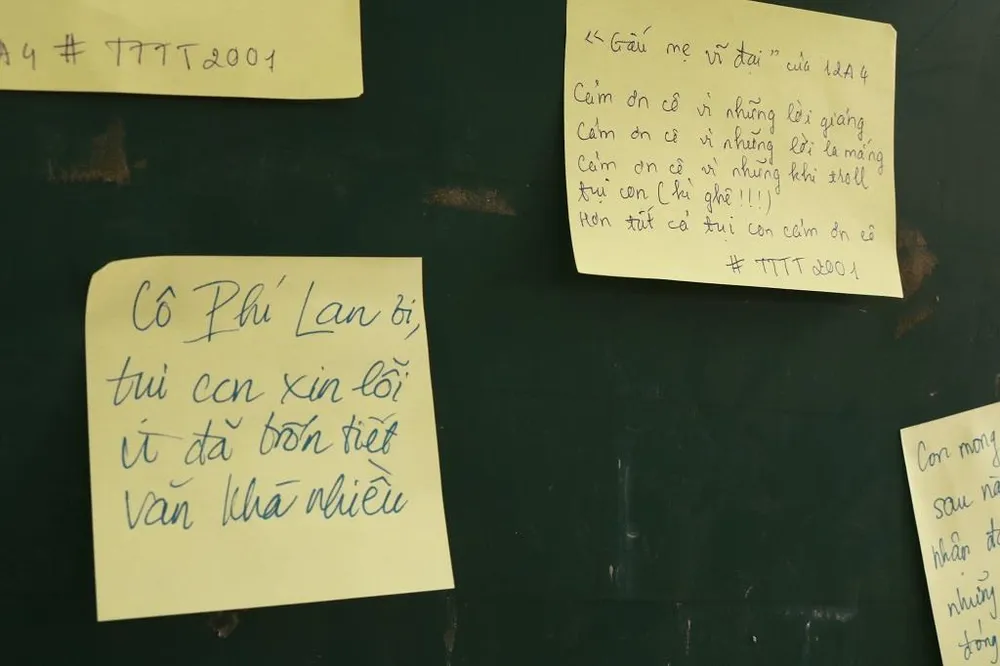 A4 # TTTT2001
"Gấu mẹ vĩ đại" của 12A4
Cảm ơn cô vì những lời giảng
Cảm ơn cô vì những lời la mắng
Cảm ơn cô vì những khi troll
tụi con (kì ghê!!!)
Hơn tất cả tụi con cảm ơn cô
# TTTT2001
Cô Phí Lan ơi,
tui con xin lỗi
vì đã trốn tiết
văn khá nhiều
Con mong
sau nà
nhận đ
những
đóng